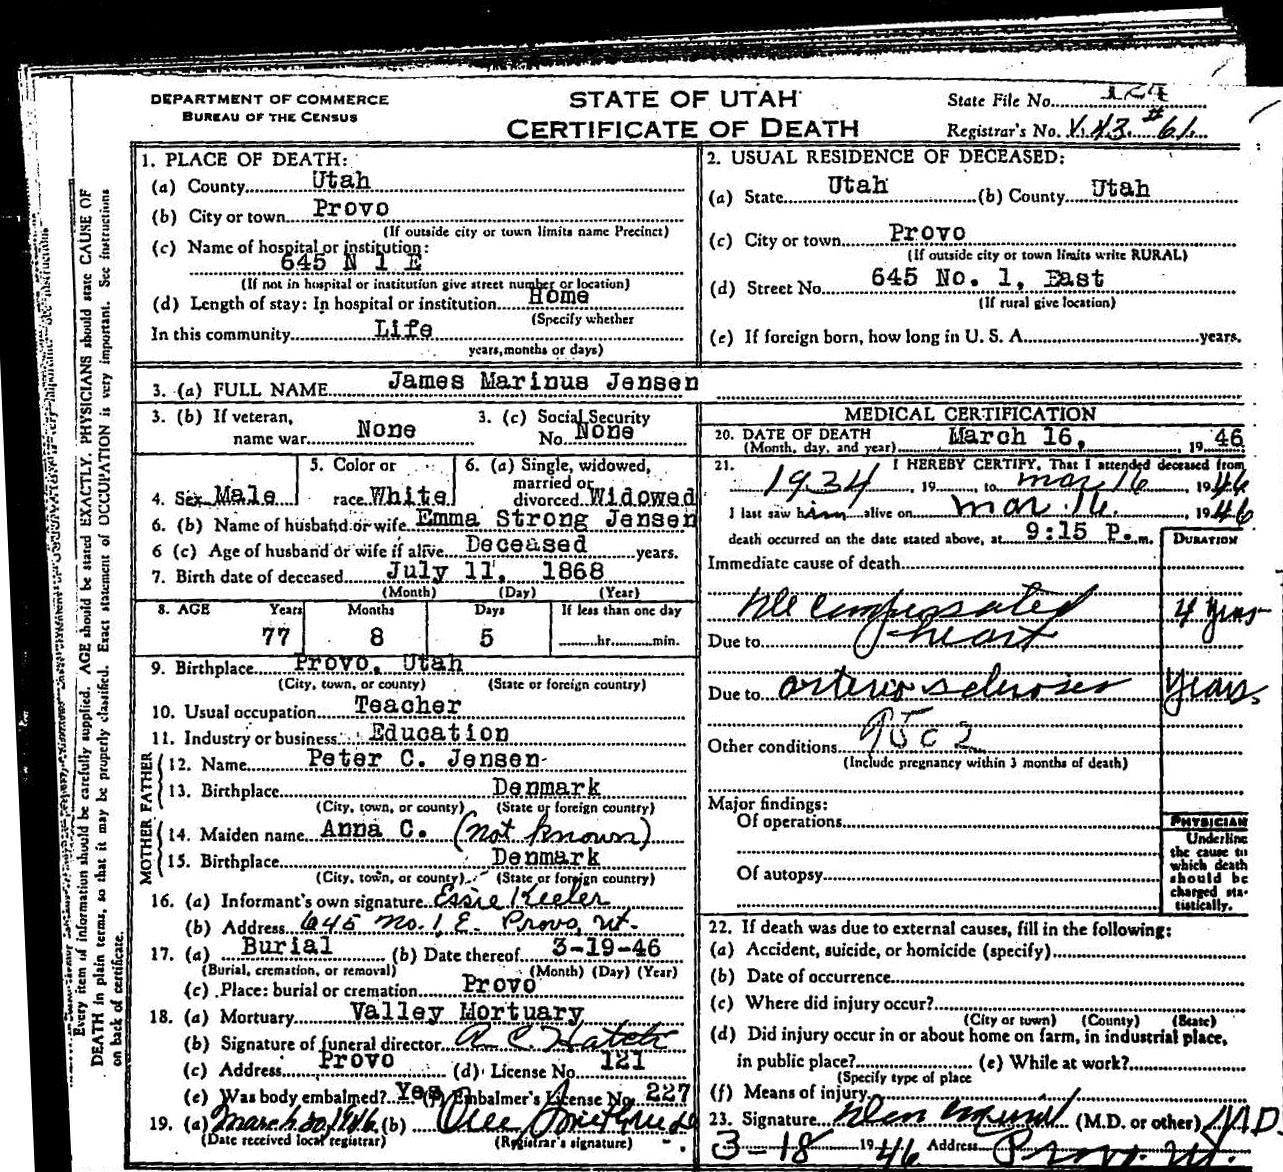 DEPARTMENT OF COMMERCE
BUREAU OF THE CENSUS
STATE OF UTAH
CERTIFICATE OF DEATH
State File No.
Registrar's No. V.43. #61
Every item of information should be carefully supplied. AGE should be stated EXACTLY. PHYSICIANS should state CAUSE OF
DEATH in plain terms, so that it may be properly classified. Exact statement of OCCUPATION is very important. See instructions
on back of certificate.
1. PLACE OF DEATH:
(a) County Utah
(b) City or town Provo
(If outside city or town limits name Precinct)
(c) Name of hospital or institution:
645 N 1 E
(If not in hospital or institution give street number or location)
(d) Length of stay: In hospital or institution Home
(Specify whether
In this community Life
years, months or days)
2. USUAL RESIDENCE OF DECEASED:
(a) State Utah (b) County Utah
(c) City or town Provo
(If outside city or town limits write RURAL)
(d) Street No. 645 No. 1, East
(If rural give location)
(e) If foreign born, how long in U. S. A. years.
3. (a) FULL NAME James Marinus Jensen
3. (b) If veteran,
name war None
3. (c) Social Security
No. None
4. Sex Male
5. Color or
race White
6. (a) Single, widowed,
married or
divorced Widowed
6. (b) Name of husband or wife Emma Strong Jensen
6 (c) Age of husband or wife if alive Deceased years.
7. Birth date of deceased July 11, 1868
(Month) (Day) (Year)
8. AGE Years Months Days If less than one day
77 8 5 hr. min.
9. Birthplace Provo, Utah
(City, town, or county) (State or foreign country)
10. Usual occupation Teacher
11. Industry or business Education
FATHER
12. Name Peter C. Jensen
13. Birthplace Denmark
(City, town, or county) (State or foreign country)
MOTHER
14. Maiden name Anna C. (not known)
15. Birthplace Denmark
(City, town, or county) (State or foreign country)
16. (a) Informant's own signature Essie Keeler
(b) Address 645 No. 1, E. Provo, Ut.
17. (a) Burial (b) Date thereof 3-19-46
(Burial, cremation, or removal) (Month) (Day) (Year)
(c) Place: burial or cremation Provo
18. (a) Mortuary Valley Mortuary
(b) Signature of funeral director A C Hatch
(c) Address Provo (d) License No. 121
(e) Was body embalmed? Yes (f) Embalmer's License No. 227
19. (a) March 20, 1946 (b)
(Date received local registrar) (Registrar's signature)
MEDICAL CERTIFICATION
20. DATE OF DEATH March 16, 19 46
(Month, day, and year)
21. I HEREBY CERTIFY, That I attended deceased from
1934, 19 to Mar 16, 1946
I last saw him alive on Mar 16, 1946
death occurred on the date stated above, at 9:15 P. m.
DURATION
Immediate cause of death
Decompensated 4 years
Due to heart
Due to arterio sclerosis years.
Other conditions 95c2
(Include pregnancy within 3 months of death)
Major findings:
Of operations
Of autopsy
PHYSICIAN
Underline
the cause to
which death
should be
charged sta-
tistically.
22. If death was due to external causes, fill in the following:
(a) Accident, suicide, or homicide (specify)
(b) Date of occurrence
(c) Where did injury occur?
(City or town) (County) (State)
(d) Did injury occur in or about home on farm, in industrial place,
in public place? (e) While at work?
(Specify type of place
(f) Means of injury
23. Signature (M.D. or other) M.D.
3-18 1946 Address Provo, Ut.